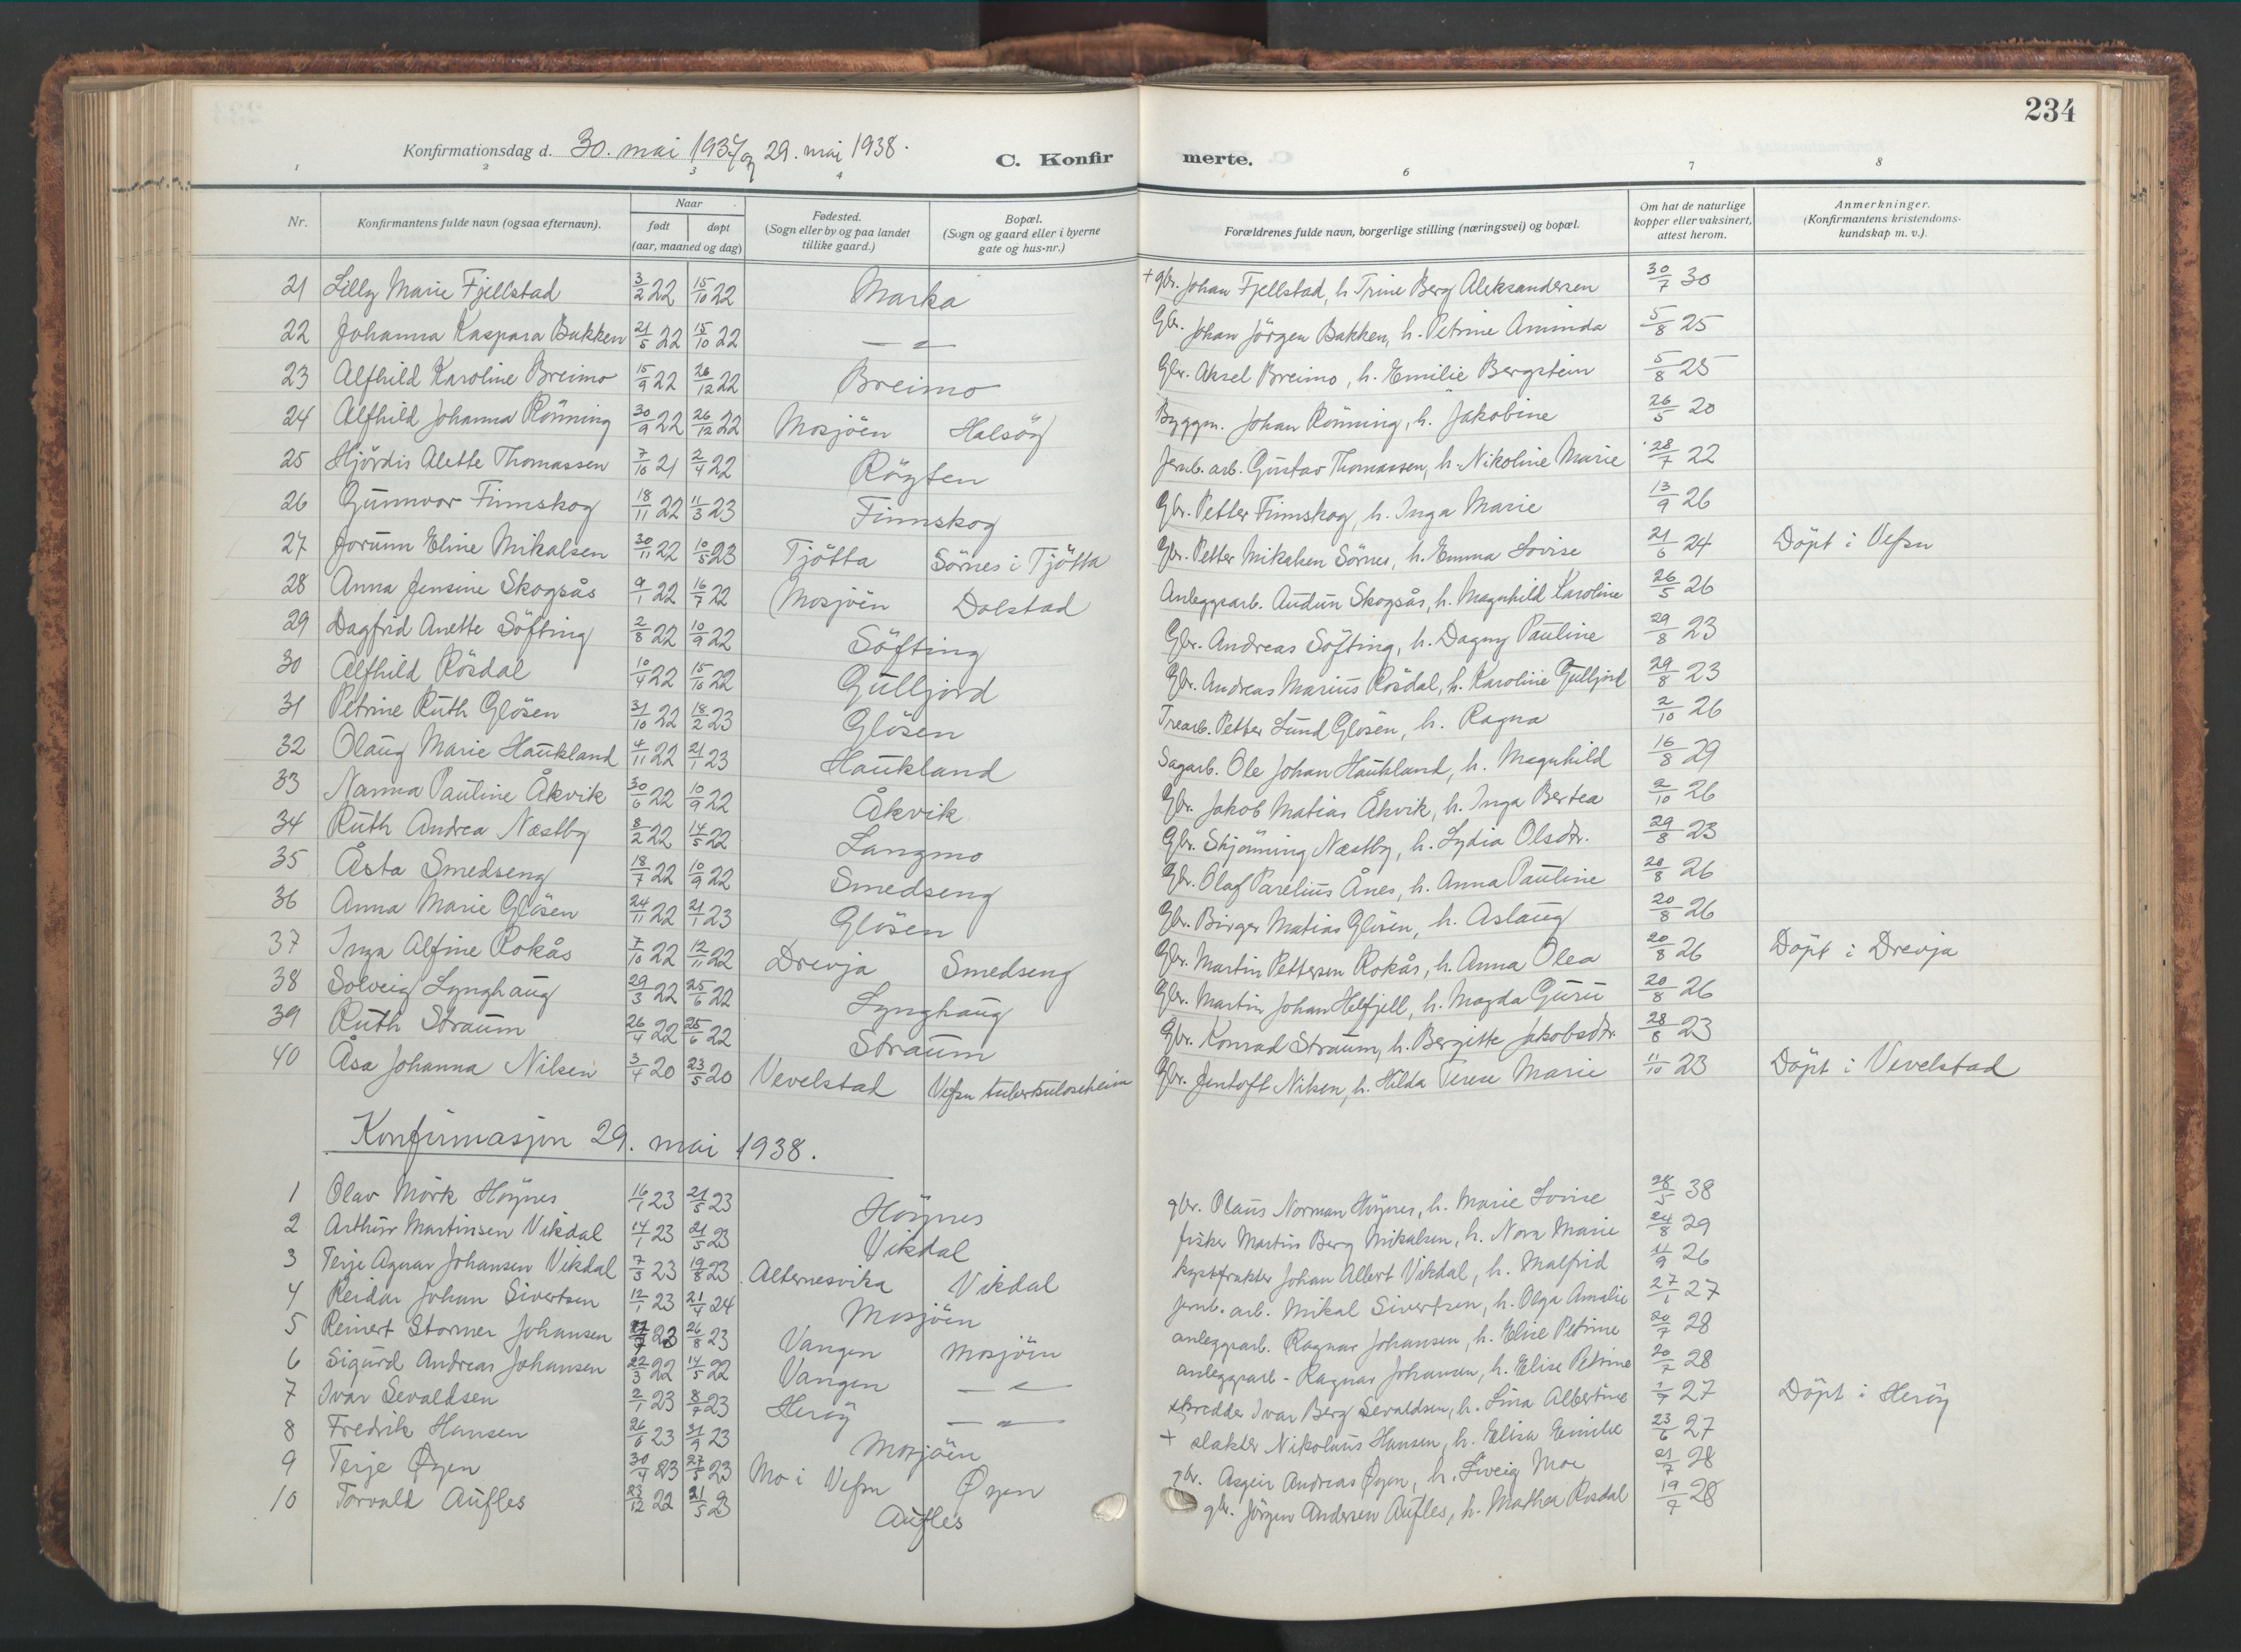 234
Konfirmationsdag d. 30. mai 1937 og 29. mai 1938. C. Konfirmerte.
1 2 3 4 6 7 8
Nr. Konfirmantens fulde navn (ogsaa efternavn). Naar født døpt (aar, maaned og dag) Fødested. (Sogn eller by og paa landet tillike gaard.) Bopæl. (Sogn og gaard eller i byerne gate og hus-nr.) Forældrenes fulde navn, borgerlige stilling (næringsvei) og bopæl. Om hat de naturlige kopper eller vaksinert, attest herom. Anmerkninger. (Konfirmantens kristendoms-kundskap m. v.).
21 Lilly Marie Fjellstad 3/2 22 15/10 22 Marka + gbr. Johan Fjellstad, h. Trine Berg Aleksandersen 30/7 30
22 Johanna Kaspara Bakken 21/5 22 15/10 22 —〃— Gbr. Johan Jörgen Bakken, h. Petrine Aminda 5/8 25
23 Alfhild Karoline Breimo 15/9 22 26/12 22 Breimo Gbr. Aksel Breimo, h. Emilie Bergstein 5/8 25
24 Alfhild Johanna Rönning 30/9 22 26/12 22 Mosjöen Halsöy Byggm. Johan Rönning, h. Jakobine 26/5 20
25 Hjördis Alette Thomassen 7/10 21 2/4 22 Röyten Jernb. arb. Gustav Thomassen, h. Nikoline Marie 28/7 22
26 Gunnvor Finnskog 18/11 22 11/3 23 Finnskog Gbr. Petter Finnskog, h. Inga Marie 13/9 26
27 Jorunn Eline Mikalsen 30/11 22 10/5 23 Tjötta Sörnes i Tjötta Gbr. Petter Mikalsen Sörnes, h. Emma Lovise 21/6 24 Döpt i Vefsn
28 Anna Jensine Skogsås 9/1 22 16/7 22 Mosjöen Dolstad Anleggsarb. Audun Skogsås, h. Magnhild Karoline 26/5 26
29 Dagfrid Anette Söfting 2/8 22 10/9 22 Söfting Gbr. Andreas Söfting, h. Dagny Pauline 29/8 23
30 Alfhild Rösdal 10/4 22 15/10 22 Gulljord Gbr. Andreas Marius Rösdal, h. Karoline Gulljord 29/8 23
31 Petrine Ruth Glösen 31/10 22 18/2 23 Glösen Trearb. Petter Lund Glösen, h. Ragna 2/10 26
32 Olaug Marie Haukland 4/11 22 21/1 23 Haukland Sagarb. Ole Johan Haukland, h. Magnhild 16/8 29
33 Nanna Pauline Åkvik 30/6 22 10/9 22 Åkvik Gbr. Jakob Matias Åkvik, h. Inga Bertea 2/10 26
34 Ruth Andrea Næstby 8/2 22 14/5 22 Langmo Gbr. Skjönning Næstby, h. Lydia Olsdtr. 29/8 23
35 Åsta Smedseng 18/7 22 10/9 22 Smedseng Gbr. Olaf Parelius Ånes, h. Anna Pauline 20/8 26
36 Anna Marie Glösen 24/11 22 21/1 23 Glösen Gbr. Birger Matias Glösen, h. Aslaug 20/8 26
37 Inga Alfine Rokås 7/10 22 12/11 22 Drevja Smedseng Gbr. Martin Pettersen Rokås, h. Anna Olea 20/8 26 Döpt i Drevja
38 Solveig Lynghaug 29/3 22 25/6 22 Lynghaug Gbr. Martin Johan Helfjell, h. Magda Guru 20/8 26
39 Ruth Straum 26/4 22 25/6 22 Straum Gbr. Konrad Straum, h. Bergitte Jakobsdtr. 28/8 23
40 Åsa Johanna Nilsen 3/4 20 23/5 20 Vevelstad Vefsn tuberkuloseheim Gbr. Jentoft Nilsen, h. Hilda Terese Marie 11/10 23 Döpt i Vevelstad
Konfirmasjon 29. mai 1938.
1 Olav Mörk Höynes 16/1 23 21/5 23 Höynes gbr. Olaus Norman Höynes, h. Marie Lovise 28/5 38
2 Arthur Martinsen Vikdal 14/1 23 21/5 23 Vikdal fisker Martin Berg Mikalsen, h. Nora Marie 24/8 29
3 Terje Agnar Johansen Vikdal 7/3 23 19/8 23 Alternesvika Vikdal kystfrakter Johan Albert Vikdal, h. Malfrid 11/9 26
4 Reidar Johan Sivertsen 12/1 23 21/4 24 Mosjöen Jernb. arb. Mikal Sivertsen, h. Olga Amalie 27/1 27
5 Reinert Stormer Johansen 23 26/8 23 Vangen Mosjöen anleggsarb. Ragnar Johansen, h. Elise Petrine 20/7 28
6 Sigurd Andreas Johansen 22/3 22 14/5 22 Vangen —〃— anleggsarb. Ragnar Johansen, h. Elise Petrine 20/7 28
7 Ivar Sevaldsen 2/1 23 8/7 23 Heröy —〃— skredder Ivar Berg Sevaldsen, h. Lina Albertine 1/7 27 Döpt i Heröy
8 Fredrik Hansen 26/6 23 21/9 23 Mosjöen + slakter Nikolaus Hansen, h. Elisa Emilie 23/6 27
9 Terje Øyen 30/4 23 27/5 23 Mo i Vefsn Øyen gbr. Asgeir Andreas Øyen, h. Siveig Moe 21/7 28
10 Torvald Aufles 23/12 22 21/5 23 Aufles gbr. Jörgen Andersen Aufles, h. Mathea Rosdal 19/7 28